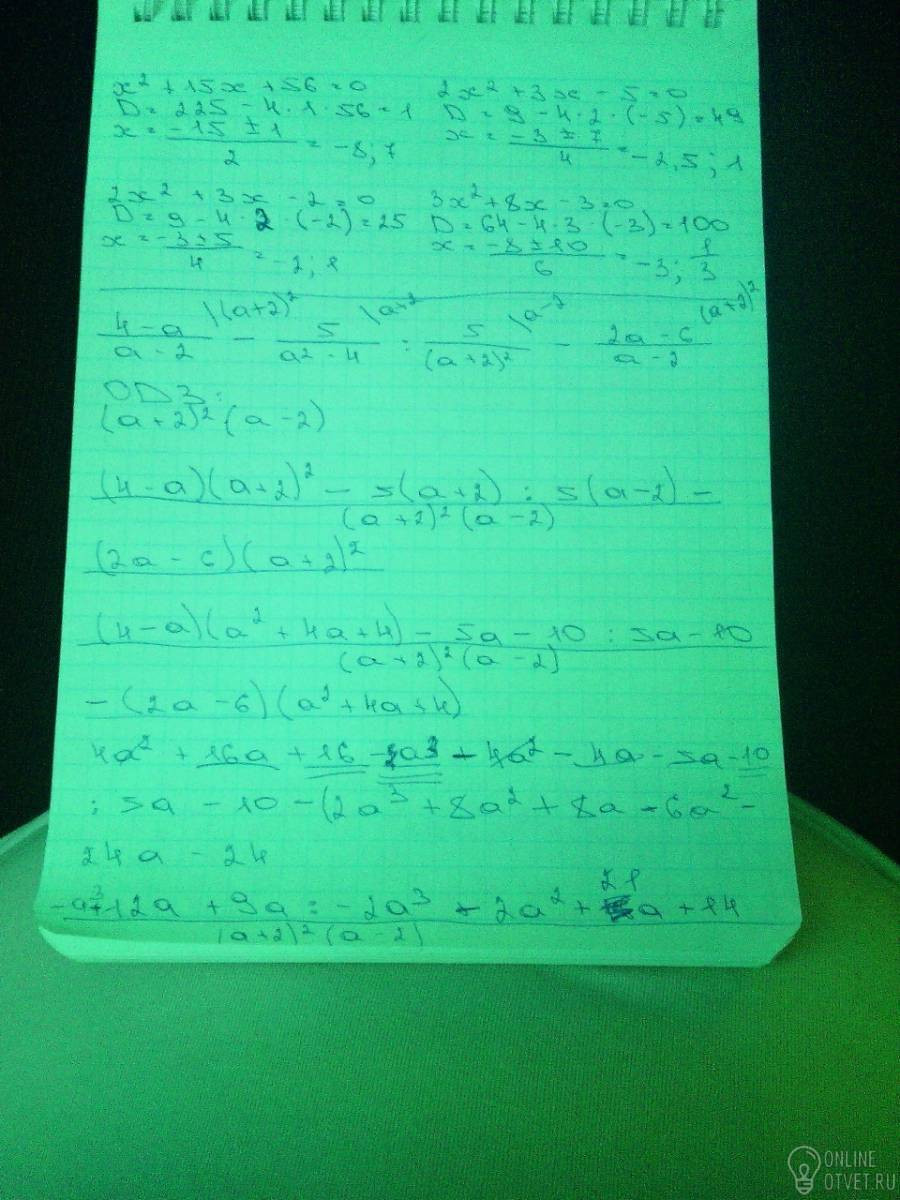 x² + 15x + 56 = 0
D = 225 - 4 · 1 · 56 = 1
x = (-15 ± 1)/2 = -8; 7
2x² + 3x - 5 = 0
D = 9 - 4 · 2 · (-5) = 49
x = (-3 ± 7)/4 = -2,5 ; 1
2x² + 3x - 2 = 0
D = 9 - 4 · 2 · (-2) = 25
x = (-3 ± 5)/4 = -2; 1
3x² + 8x - 3 = 0
D = 64 - 4 · 3 · (-3) = 100
x = (-8 ± 10)/6 = -3; 1/3
(4-a)/(a-2) \(a+2)² - 5/(a²-4) \a+2 : 5/(a+2)² \a-2 - (2a-6)/(a-2) (a+2)²
ОДЗ:
(a+2)² (a-2)
(4-a)(a+2)² - 5(a+2) : 5(a-2) -
(a+2)² (a-2)
(2a-6)(a+2)²
(4-a)(a² + 4a + 4) - 5a - 10 : 5a - 10
(a+2)² (a-2)
- (2a-6)(a² + 4a + 4)
4a² + 16a + 16 - a³ - 4a² - 4a - 5a - 10
: 5a - 10 - (2a³ + 8a² + 8a - 6a² -
24a - 24
-a³ + 12a + 9a : -2a³ - 2a² + 21a + 14
(a+2)² (a-2)
ONLINE
OTVET.RU